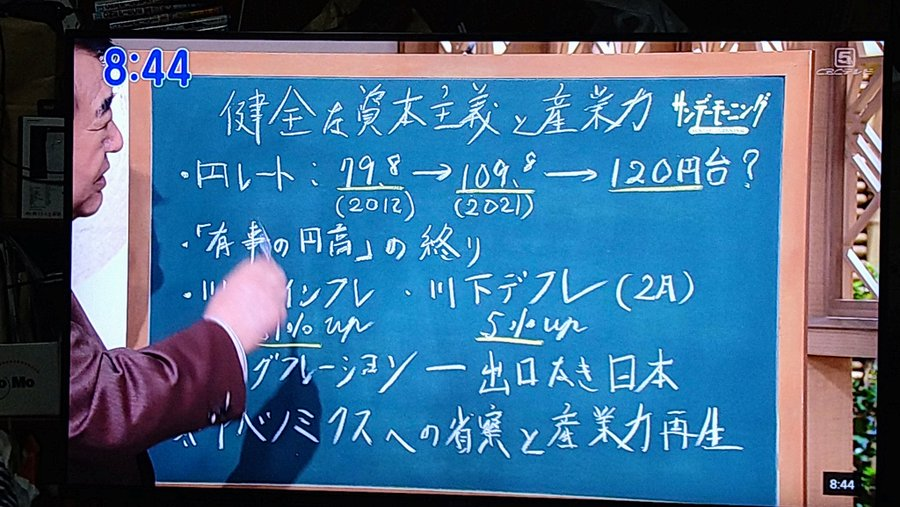 8:44
健全な資本主義と産業力 サンデーモーニング
・円レート: 79.8 → 109.8 → 120円台?
(2012) (2021)
・「有事の円高」の終り
・川 インフレ ・川下デフレ (2月)
% up 5% up
グフレーション ー 出口なき日本
ベノミクスへの省察と産業力再生
8:44